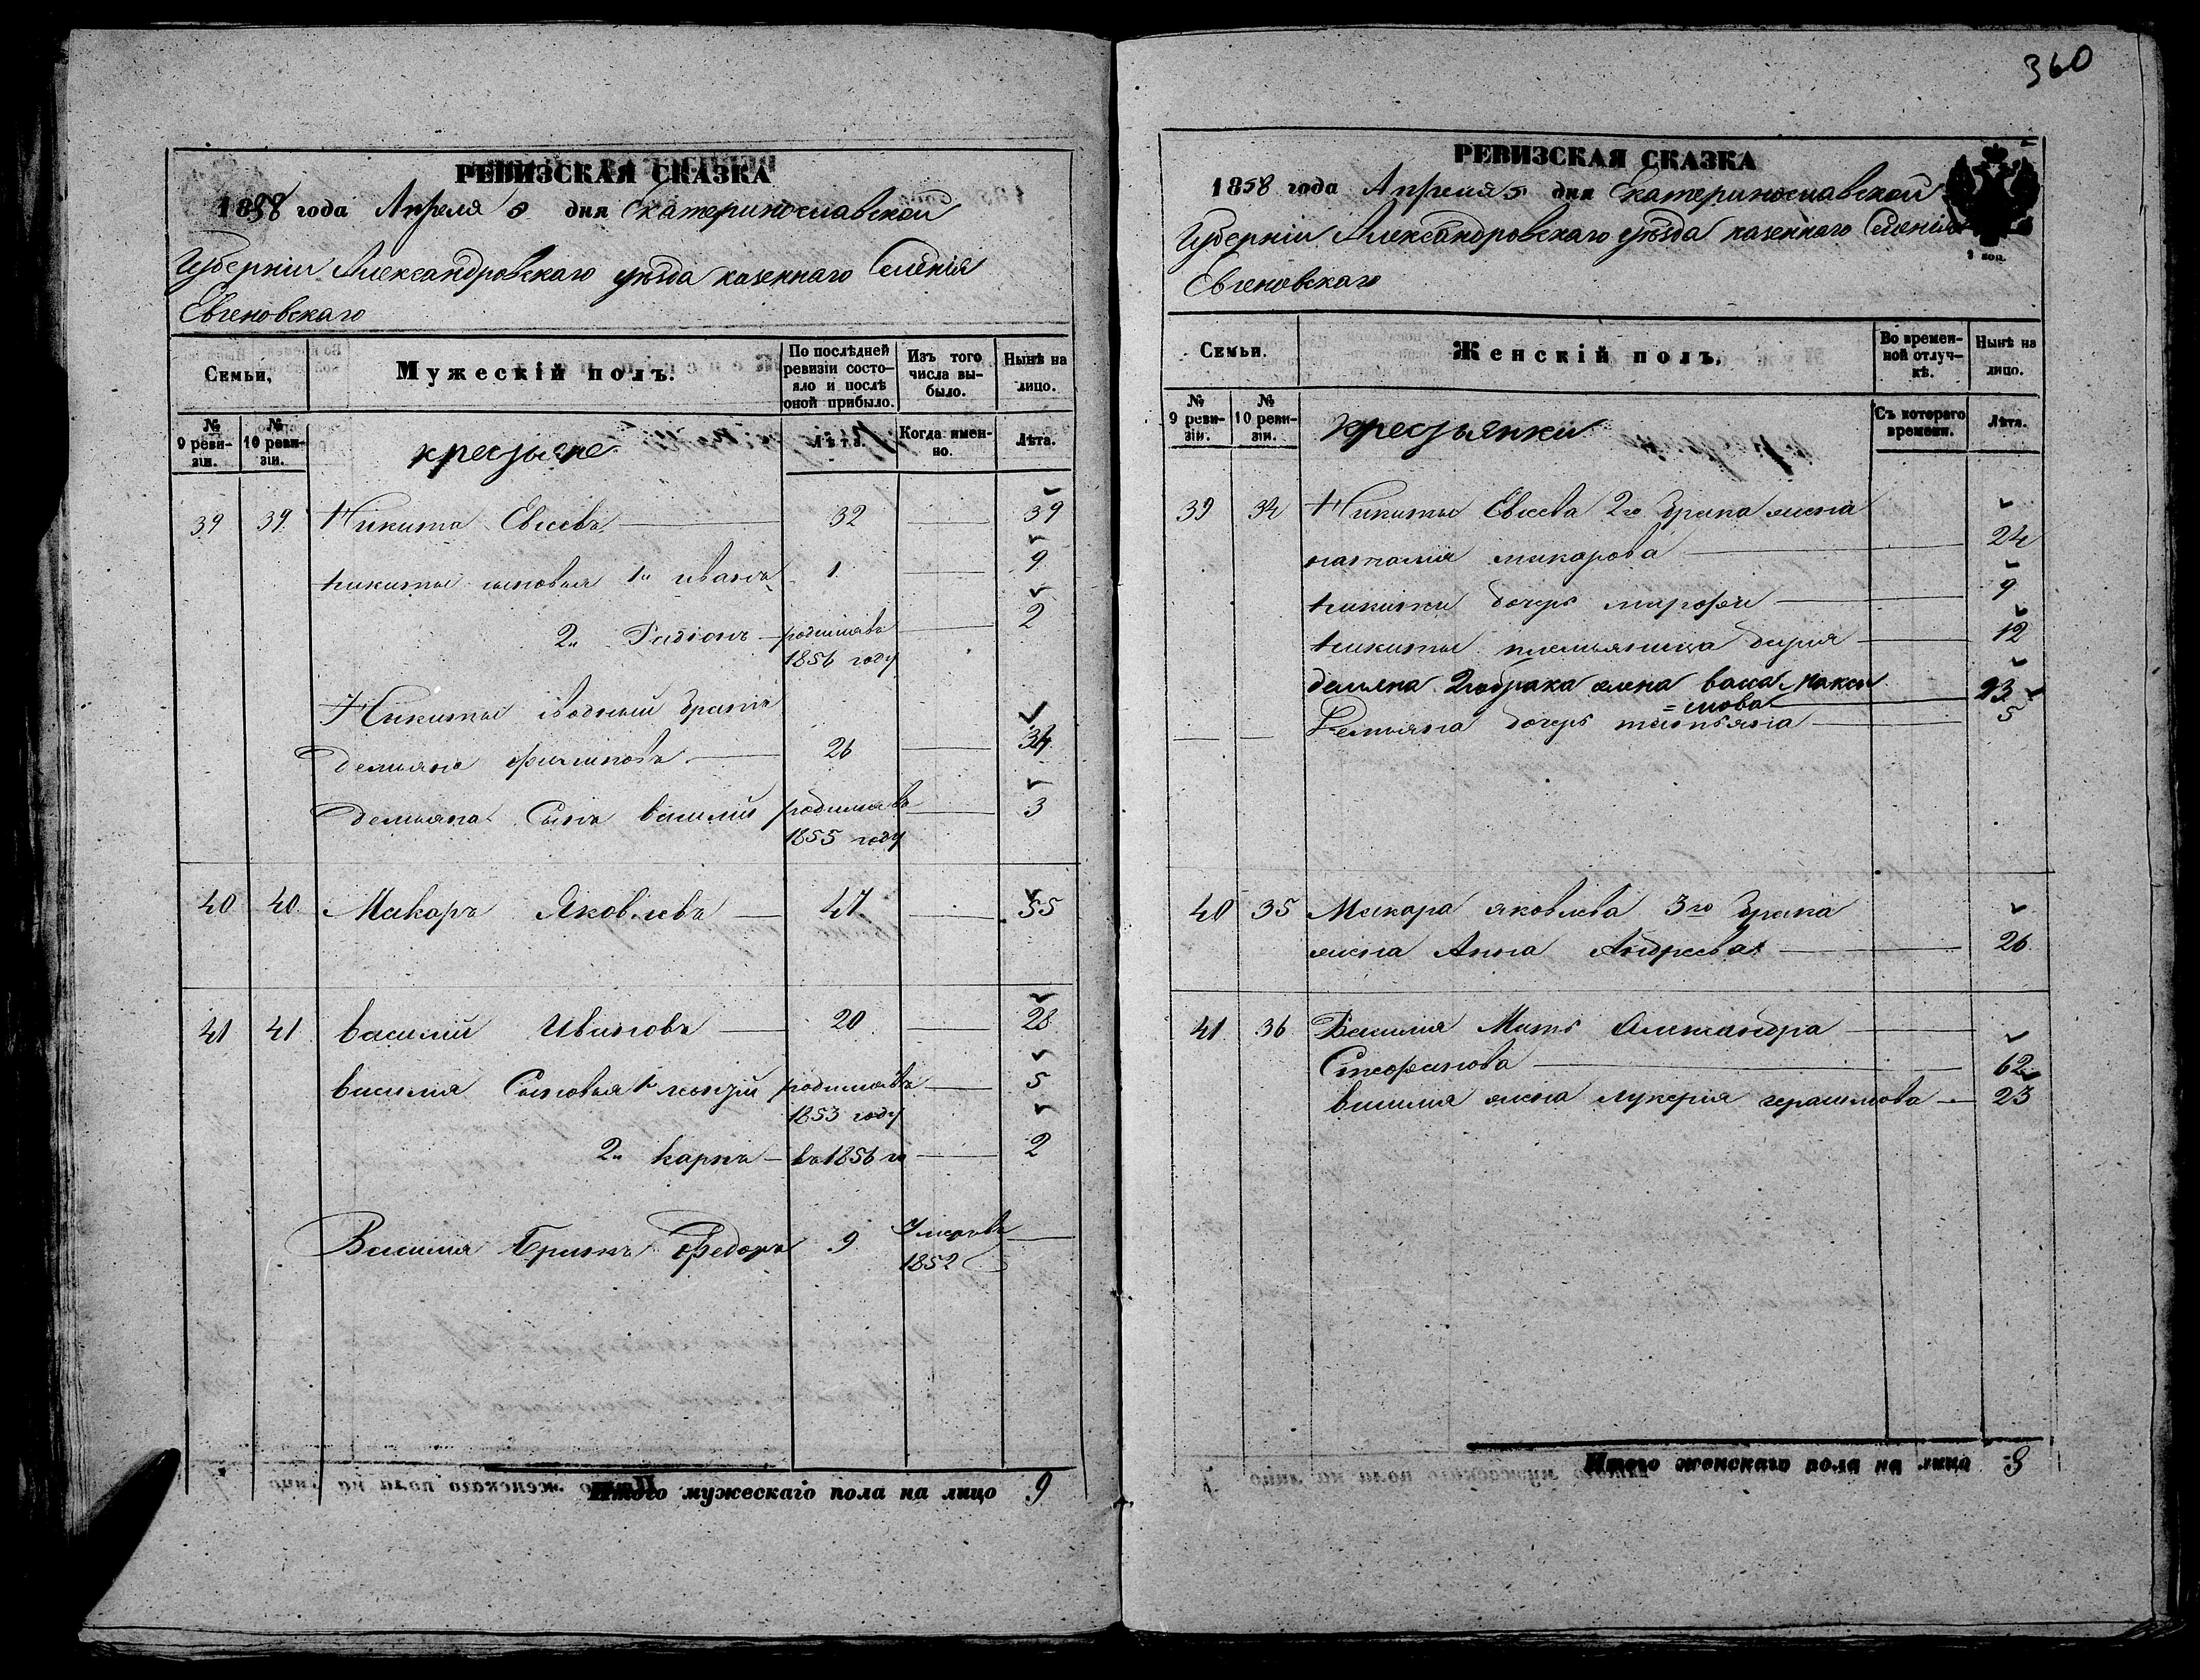 РЕВИЗСКАЯ СКАЗКА
1858 года Апреля 5 дня Екатеринославской
Губерніи Александровскаго уѣзда казеннаго Селенія
Евгеновскаго
Семьи,
Мужескій полъ.
По послѣдней ревизіи состояло и послѣ оной прибыло.
Изъ того числа выбыло.
Нынѣ на лицо.
№ 9 ревизіи.
№ 10 ревизіи.
крестьяне
Лѣта.
Когда именно.
Лѣта.
39 39 Никита Евсеевъ 32 39
никиты сыновья 1й иванъ 1 9
2й Радіонъ родился въ 2
1856 году
Никиты сводный братъ
демьянъ филиповъ 26 34
демьяна Сынъ василий родился въ 3
1855 году
40 40 Макаръ Яковлевъ 47 55
41 41 василий Ивановъ 20 28
василия Сыновья 1й родился въ 5
1853 году
2й карпъ въ 1856 го 2
Василия Братъ Федоръ 9 Умеръ въ
1852
Итого мужескаго пола на лицо 9
360
РЕВИЗСКАЯ СКАЗКА
1858 года Апреля 5 дня Екатеринославской
Губерніи Александровскаго уѣзда казеннаго Селенія
Евгеновскаго
Семьи.
Женскій полъ.
Во временной отлучкѣ.
Нынѣ на лицо.
№ 9 ревизіи.
№ 10 ревизіи.
крестьянки
Съ котораго времени.
Лѣта.
39 34 Никиты Евсеева 2го брака жена
наталия макарова 24
никиты дочерь 9
никиты племьяница дарья 12
демьяна 2го брака жена васса макси
=мова 23
Демьяна дочерь татьяна 5
40 35 Макара яковлева 3го брака
жена Анна Андреева 26
41 36 Василия Мать Александра
Стефанова 62
василия жена лукерия герасимова 23
Итого женскаго пола на лицо 8